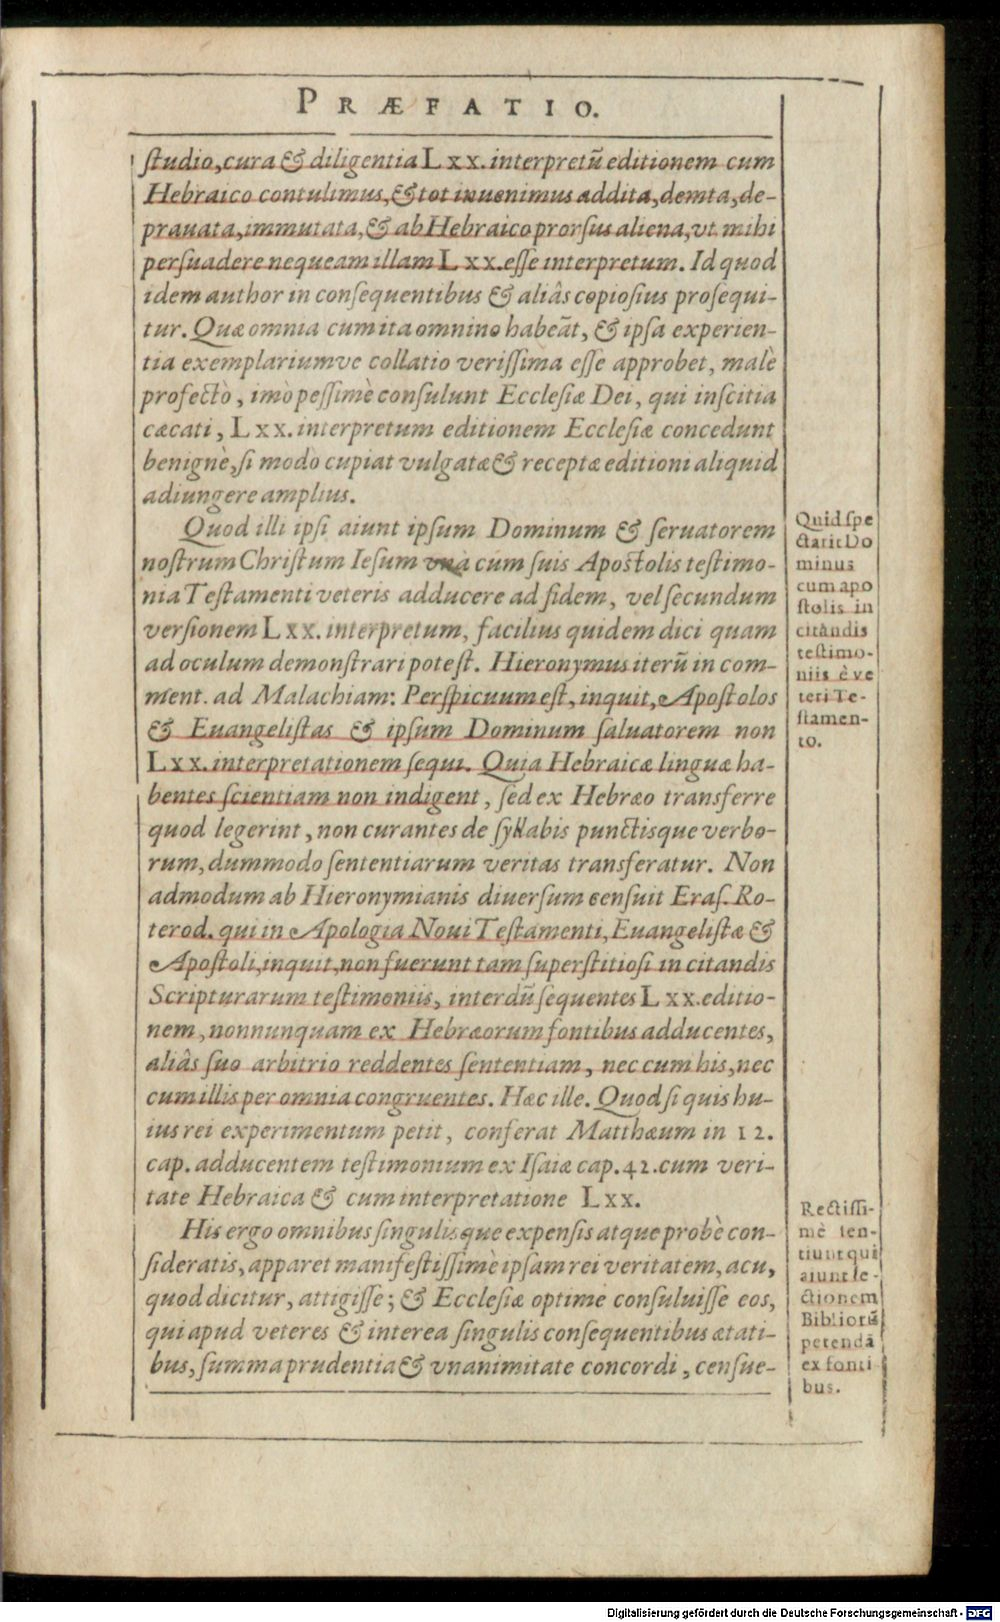 PRÆFATIO.
studio, cura & diligentia Lxx. interpretũ editionem cum
Hebraico contulimus, & tot inuenimus addita, demta, de-
prauata, immutata, & ab Hebraico prorsus aliena, vt mihi
persuadere nequeam illam Lxx. esse interpretum. Id quod
idem author in consequentibus & aliâs copiosius prosequi-
tur. Quæ omnia cum ita omnino habeãt, & ipsa experien-
tia exemplariumve collatio verissima esse approbet, malè
profectò, imò pessimè consulunt Ecclesiæ Dei, qui inscitia
cæcati, Lxx. interpretum editionem Ecclesiæ concedunt
benignè, si modò cupiat vulgatæ & receptæ editioni aliquid
adiungere amplius.
Quod illi ipsi aiunt ipsum Dominum & seruatorem
nostrum Christum Iesum vnà cum suis Apostolis testimo-
nia Testamenti veteris adducere ad fidem, vel secundum
versionem Lxx. interpretum, facilius quidem dici quam
ad oculum demonstrari potest. Hieronymus iterũ in com-
ment. ad Malachiam: Perspicuum est, inquit, Apostolos
& Euangelistas & ipsum Dominum saluatorem non
Lxx. interpretationem sequi. Quia Hebraicæ linguæ ha-
bentes scientiam non indigent, sed ex Hebræo transferre
quod legerint, non curantes de syllabis punctisque verbo-
rum, dummodo sententiarum veritas transferatur. Non
admodum ab Hieronymianis diuersum censuit Eras. Ro-
terod. qui in Apologia Noui Testamenti, Euangelistæ &
Apostoli, inquit, non fuerunt tam superstitiosi in citandis
Scripturarum testimoniis, interdũ sequentes Lxx. editio-
nem, nonnunquam ex Hebræorum fontibus adducentes,
aliâs suo arbitrio reddentes sententiam, nec cum his, nec
cum illis per omnia congruentes. Hæc ille. Quod si quis hu-
ius rei experimentum petit, conferat Matthæum in 12.
cap. adducentem testimonium ex Isaiæ cap. 42. cum veri-
tate Hebraica & cum interpretatione Lxx.
His ergo omnibus singulisque expensis atque probè con-
sideratis, apparet manifestissimè ipsam rei veritatem, acu,
quod dicitur, attigisse; & Ecclesiæ optime consuluisse eos,
qui apud veteres & interea singulis consequentibus ætati-
bus, summa prudentia & vnanimitate concordi, censue-
Quid spe
ctarit Do
minus
cum apo
stolis in
citandis
testimo-
niis è ve
teri Te-
stamen-
to.
Rectissi-
mè sen-
tiunt qui
aiunt le-
ctionem
Bibliorũ
petendã
ex fonti
bus.
Digitalisierung gefördert durch die Deutsche Forschungsgemeinschaft - DFG